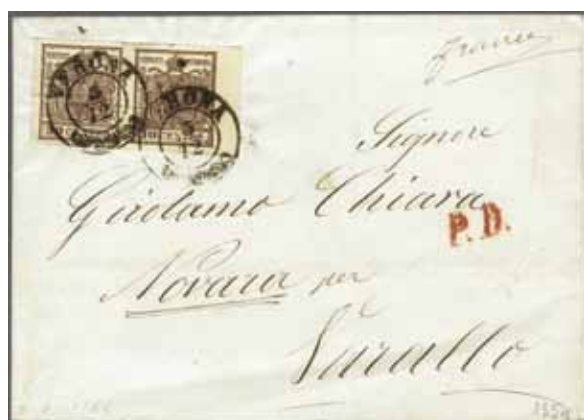 VERONA
5
12
VERONA
5
12
franca
Signore
Girolamo Chiara
P.D.
Novara per
Varallo